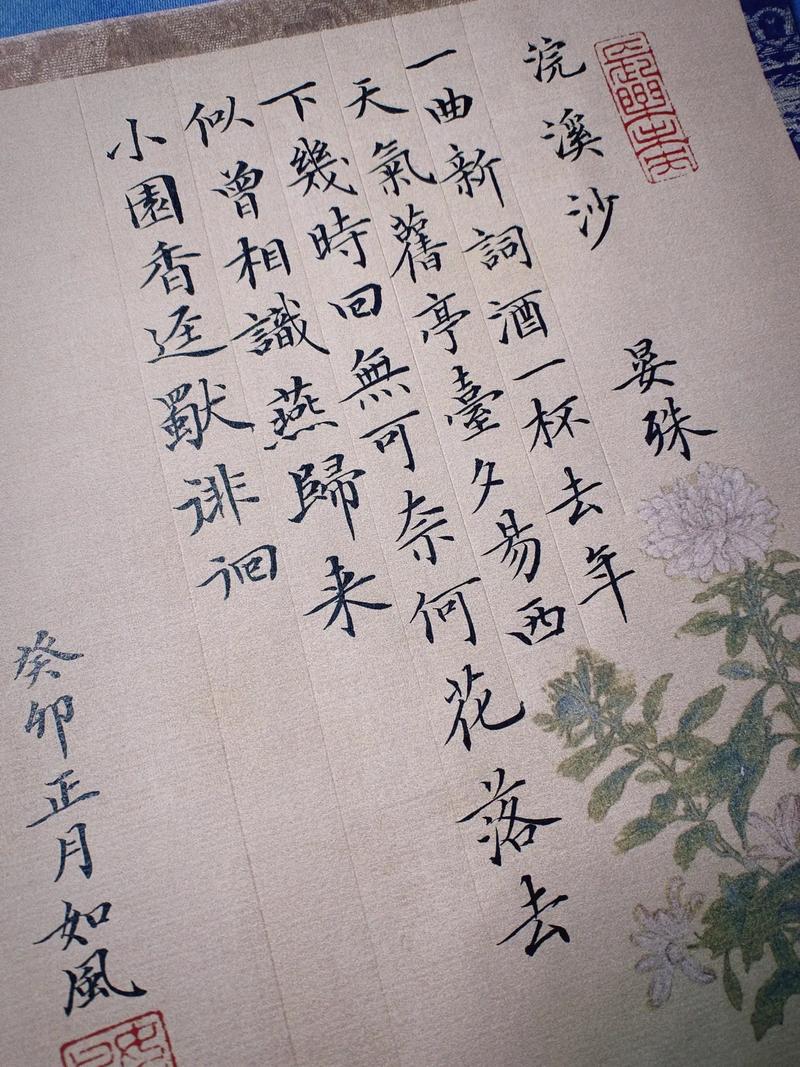 浣溪沙 晏殊
一曲新詞酒一杯去年
天氣舊亭臺夕易西
下幾時回無可奈何花落去
似曾相識燕歸来
小園香逕獨徘徊
癸卯正月如風